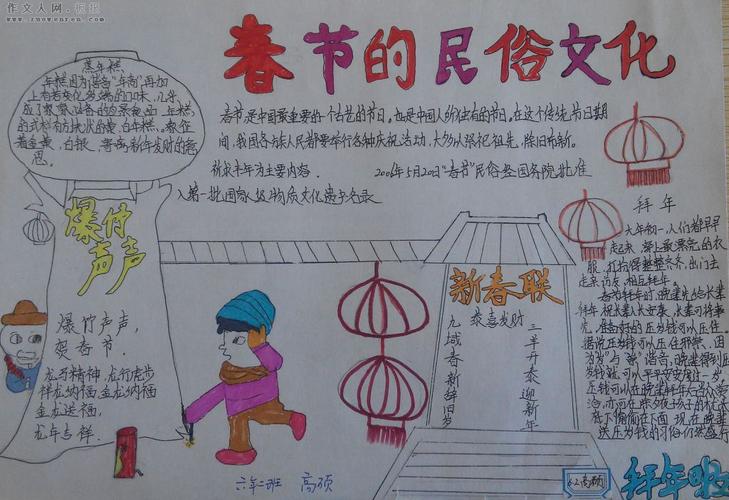 作文人网.板报
www.zuowenren.com
春节的民俗文化
蒸年糕
年糕因为谐音"年高"再加
上有着变化多端的口味，几乎
成了家家必备的应景食品。年糕
的式样有方块状的黄、白年糕、象征
着黄金、白银，寄寓新年发财的意
思。
春节是中国最重要的一个古老的节日。也是中国人所独有的节日。在这个传统节日期
间，我国各族人民都要举行各种庆祝活动，大多以祭祀祖先、除旧布新、
祈求丰年为主要内容。 2006年5月20日"春节"民俗经国务院批准
入第一批国家级物质文化遗产名录
爆竹
声声
爆竹声声，
贺春节．
龙马精神，龙行虎步
祥龙纳福，金龙纳福
金龙送福，
龙年吉祥．
新春联
恭喜发财
三羊开泰迎新年
九域春新辞旧岁
拜年
大年初一，人们都早早
起来，穿上最漂亮的衣
服，打扮得整整齐齐，出门去
走亲访友，相互拜年。
春节拜年时，晚辈先给长辈
拜年，祝长辈长寿安康，长辈可将事
先准备好的压岁钱可以压住
据说压岁钱可以压住邪祟，因
为"岁"与"祟"谐音，晚辈得到压
岁钱就可以平平安安度过一岁，
压钱可以在晚辈拜年后当众
在除夕夜孩子
现在
压岁钱的习俗仍然盛行
拜年啦
六年二班 高硕
6.2高硕